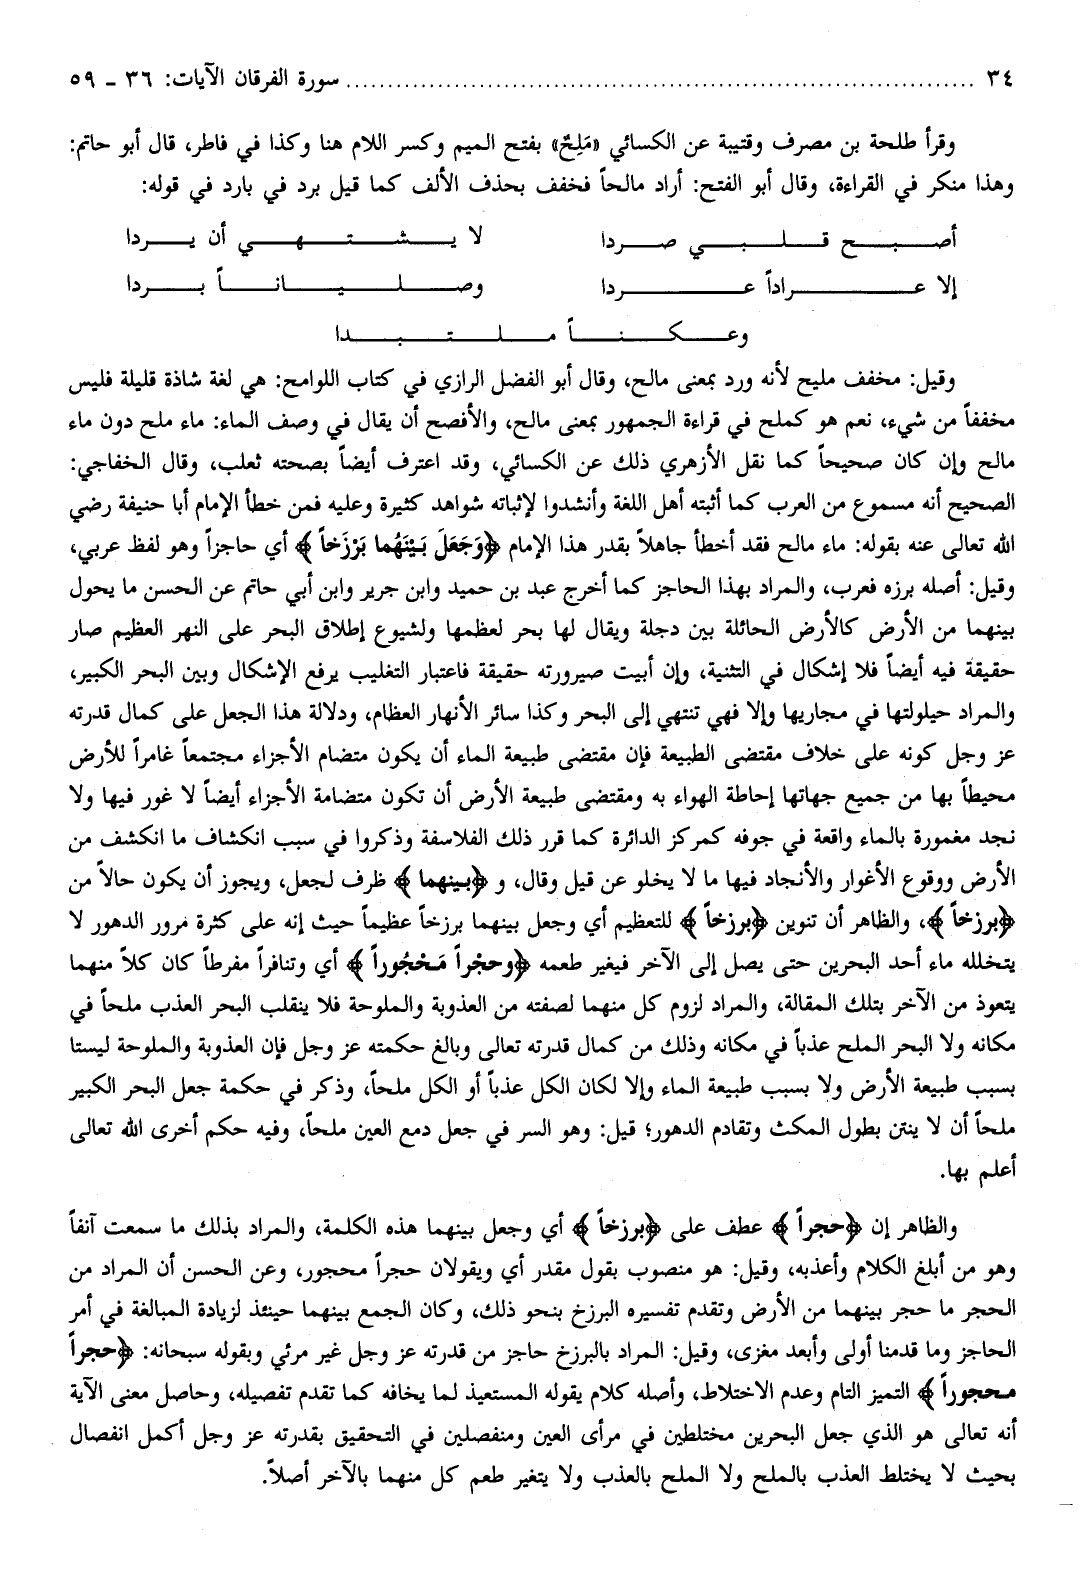 ٣٤ ........................................................................... سورة الفرقان الآيات: ٣٦ ـ ٥٩
وقرأ طلحة بن مصرف وقتيبة عن الكسائي «مَلِحٌ» بفتح الميم وكسر اللام هنا وكذا في فاطر، قال أبو حاتم:
وهذا منكر في القراءة، وقال أبو الفتح: أراد مالحاً فخفف بحذف الألف كما قيل برد في بارد في قوله:
أصبح قلبي صردا لا يشتهي أن يردا
إلا عراداً عردا وصلياناً بردا
وعكناً ملتبدا
وقيل: مخفف مليح لأنه ورد بمعنى مالح، وقال أبو الفضل الرازي في كتاب اللوامح: هي لغة شاذة قليلة فليس
مخففاً من شيء، نعم هو كملح في قراءة الجمهور بمعنى مالح، والأفصح أن يقال في وصف الماء: ماء ملح دون ماء
مالح وإن كان صحيحاً كما نقل الأزهري ذلك عن الكسائي، وقد اعترف أيضاً بصحته ثعلب، وقال الخفاجي:
الصحيح أنه مسموع من العرب كما أثبته أهل اللغة وأنشدوا لإثباته شواهد كثيرة وعليه فمن خطأ الإمام أبا حنيفة رضي
الله تعالى عنه بقوله: ماء مالح فقد أخطأ جاهلاً بقدر هذا الإمام ﴿وَجَعَلَ بَيْنَهُما بَرْزَخاً﴾ أي حاجزاً وهو لفظ عربي،
وقيل: أصله برزه فعرب، والمراد بهذا الحاجز كما أخرج عبد بن حميد وابن جرير وابن أبي حاتم عن الحسن ما يحول
بينهما من الأرض كالأرض الحائلة بين دجلة ويقال لها بحر لعظمها ولشيوع إطلاق البحر على النهر العظيم صار
حقيقة فيه أيضاً فلا إشكال في التثنية، وإن أبيت صيرورته حقيقة فاعتبار التغليب يرفع الإشكال وبين البحر الكبير،
والمراد حيلولتها في مجاريها وإلا فهي تنتهي إلى البحر وكذا سائر الأنهار العظام، ودلالة هذا الجعل على كمال قدرته
عز وجل كونه على خلاف مقتضى الطبيعة فإن مقتضى طبيعة الماء أن يكون متضام الأجزاء مجتمعاً غامراً للأرض
محيطاً بها من جميع جهاتها إحاطة الهواء به ومقتضى طبيعة الأرض أن تكون متضامة الأجزاء أيضاً لا غور فيها ولا
نجد مغمورة بالماء واقعة في جوفه كمركز الدائرة كما قرر ذلك الفلاسفة وذكروا في سبب انكشاف ما انكشف من
الأرض ووقوع الأغوار والأنجاد فيها ما لا يخلو عن قيل وقال، و ﴿بينهما﴾ ظرف لجعل، ويجوز أن يكون حالاً من
﴿برزخاً﴾، والظاهر أن تنوين ﴿برزخاً﴾ للتعظيم أي وجعل بينهما برزخاً عظيماً حيث إنه على كثرة مرور الدهور لا
يتخلله ماء أحد البحرين حتى يصل إلى الآخر فيغير طعمه ﴿وحجْراً مَحْجُوراً﴾ أي وتنافراً مفرطاً كان كلاً منهما
يتعوذ من الآخر بتلك المقالة، والمراد لزوم كل منهما لصفته من العذوبة والملوحة فلا ينقلب البحر العذب ملحاً في
مكانه ولا البحر الملح عذباً في مكانه وذلك من كمال قدرته تعالى وبالغ حكمته عز وجل فإن العذوبة والملوحة ليستا
بسبب طبيعة الأرض ولا بسبب طبيعة الماء وإلا لكان الكل عذباً أو الكل ملحاً، وذكر في حكمة جعل البحر الكبير
ملحاً أن لا ينتن بطول المكث وتقادم الدهور؛ قيل: وهو السر في جعل دمع العين ملحاً، وفيه حكم أخرى الله تعالى
أعلم بها.
والظاهر إن ﴿حجراً﴾ عطف على ﴿برزخاً﴾ أي وجعل بينهما هذه الكلمة، والمراد بذلك ما سمعت آنفاً
وهو من أبلغ الكلام وأعذبه، وقيل: هو منصوب بقول مقدر أي ويقولان حجراً محجور، وعن الحسن أن المراد من
الحجر ما حجر بينهما من الأرض وتقدم تفسيره البرزخ بنحو ذلك، وكان الجمع بينهما حينئذ لزيادة المبالغة في أمر
الحاجز وما قدمنا أولى وأبعد مغزى، وقيل: المراد بالبرزخ حاجز من قدرته عز وجل غير مرئي وبقوله سبحانه: ﴿حجراً
محجوراً﴾ التميز التام وعدم الاختلاط، وأصله كلام يقوله المستعيذ لما يخافه كما تقدم تفصيله، وحاصل معنى الآية
أنه تعالى هو الذي جعل البحرين مختلطين في مرأى العين ومنفصلين في التحقيق بقدرته عز وجل أكمل انفصال
بحيث لا يختلط العذب بالملح ولا الملح بالعذب ولا يتغير طعم كل منهما بالآخر أصلاً.